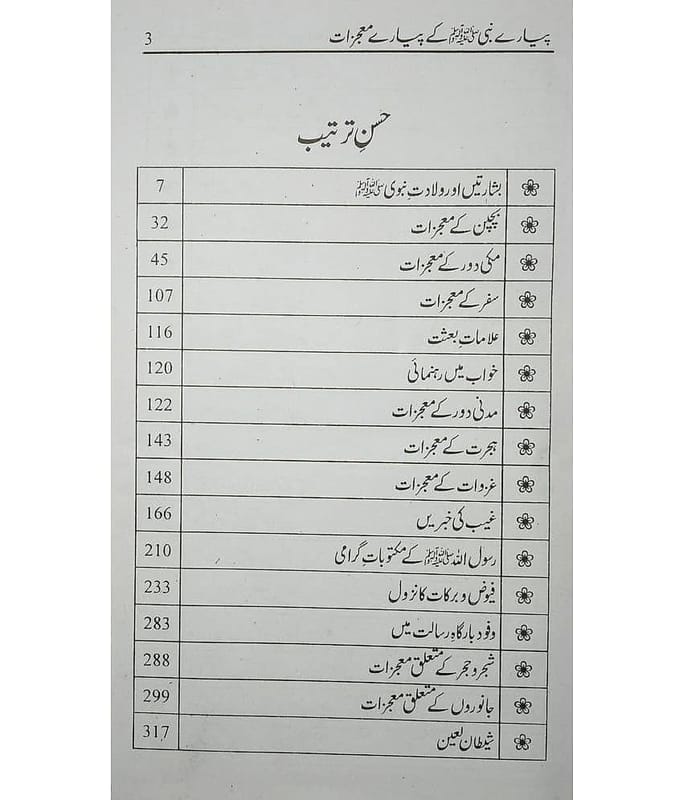 پیارے نبی ﷺ کے پیارے معجزات 3
حسنِ ترتیب
بشارتیں اور ولادتِ نبوی ﷺ 7
بچپن کے معجزات 32
مکی دور کے معجزات 45
سفر کے معجزات 107
علاماتِ بعثت 116
خواب میں رہنمائی 120
مدنی دور کے معجزات 122
ہجرت کے معجزات 143
غزوات کے معجزات 148
غیب کی خبریں 166
رسول اللہ ﷺ کے مکتوباتِ گرامی 210
فیوض و برکات کا نزول 233
وفود بارگاہِ رسالت میں 283
شجر و حجر کے متعلق معجزات 288
جانوروں کے متعلق معجزات 299
شیطان لعین 317